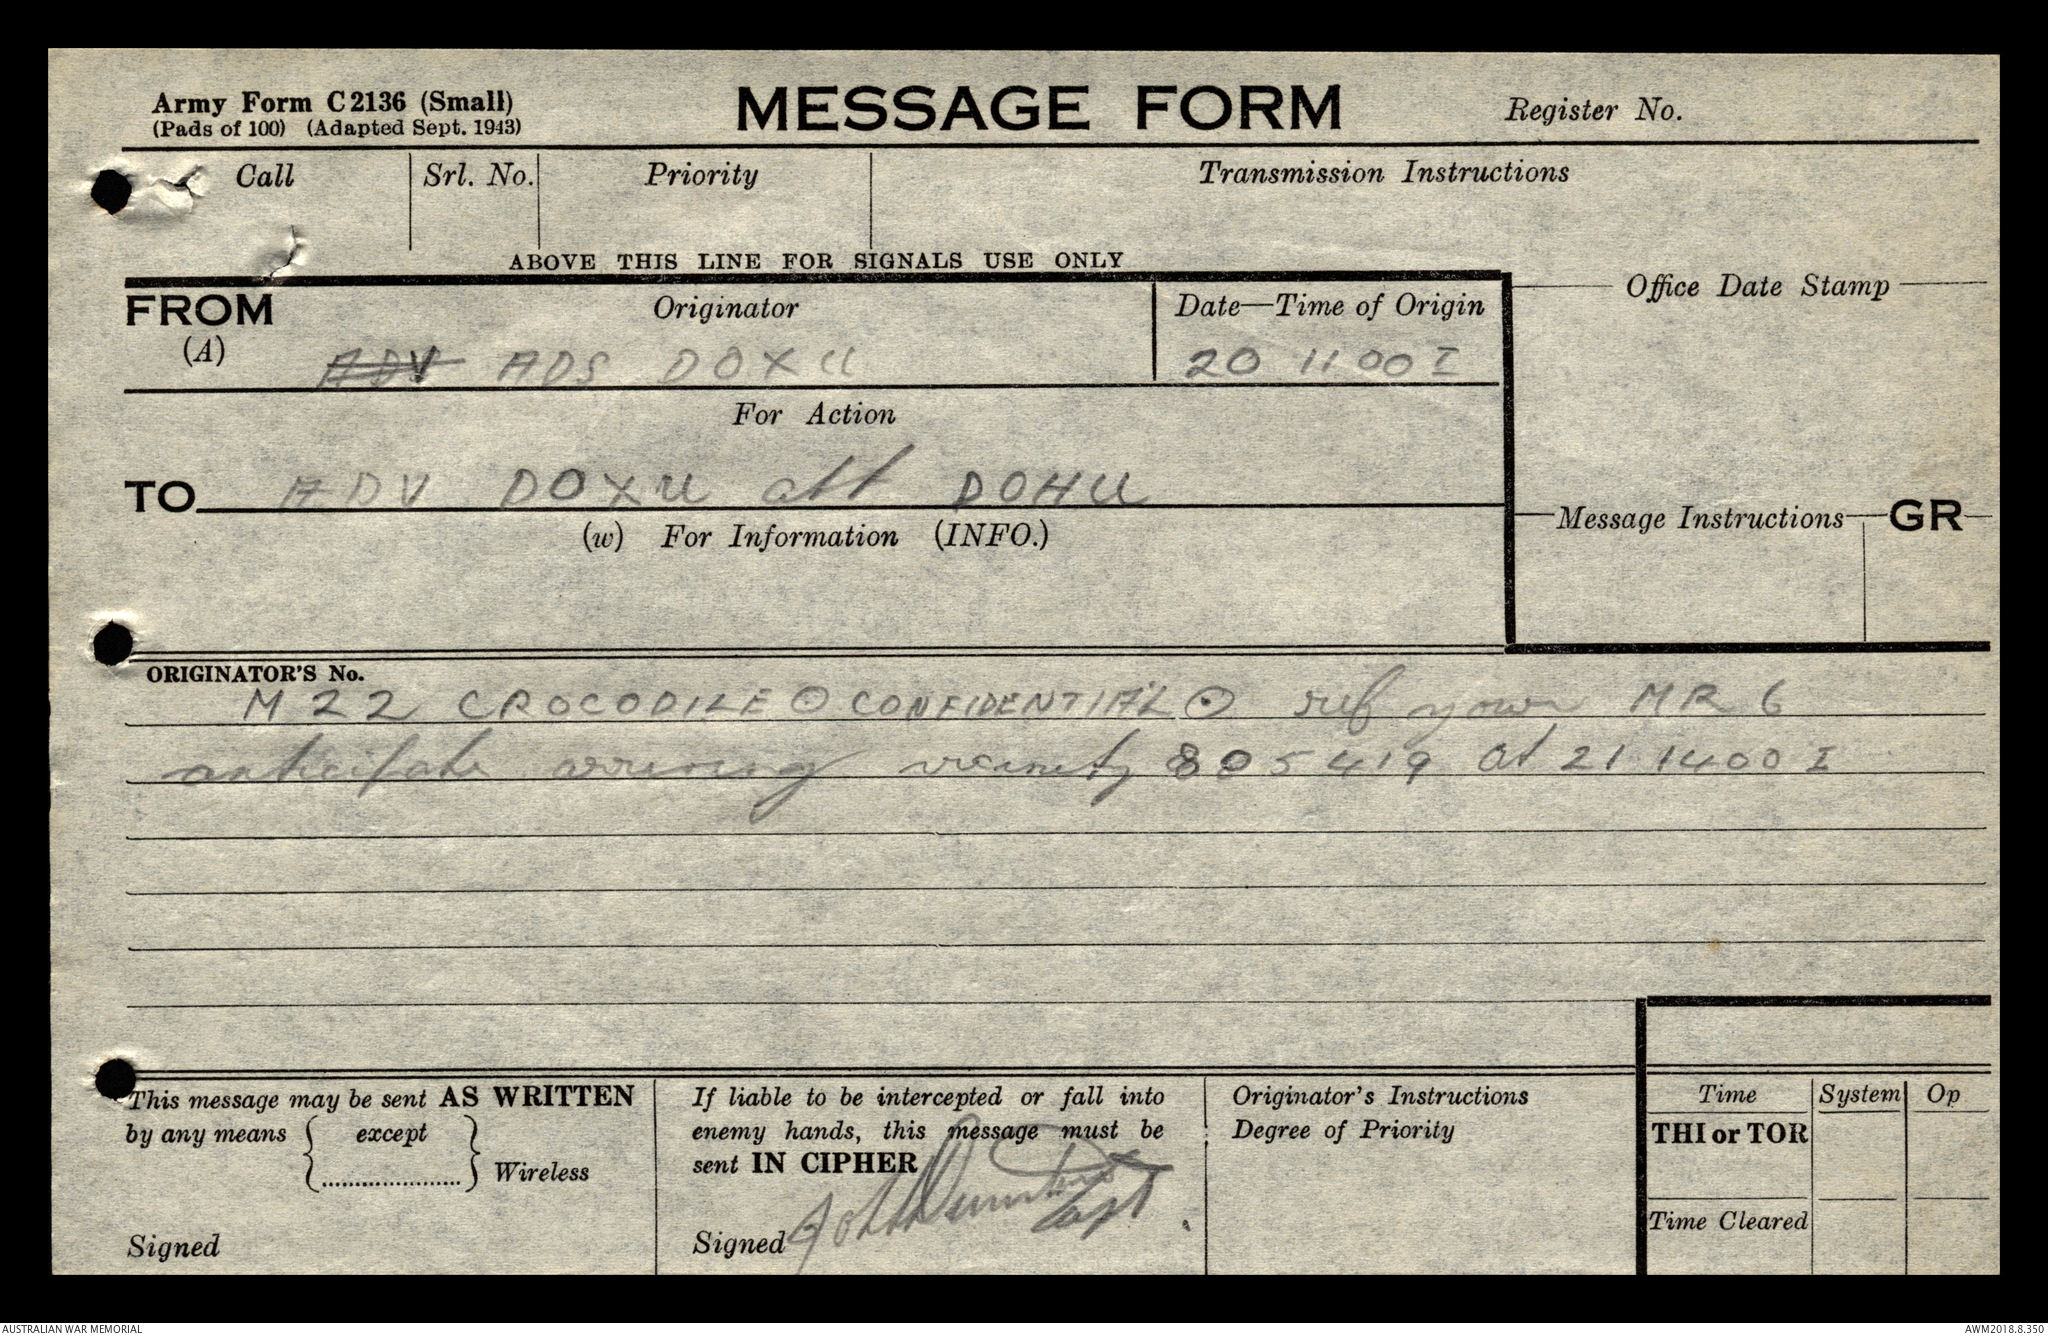 Army Form C2136 (Small)
(Pads of 100) (Adapted Sept. 1943)
MESSAGE FORM
Register No.
Call
Srl. No.
Priority
Transmission Instructions
ABOVE THIS LINE FOR SIGNALS USE ONLY
FROM
(A)
Originator
Date—Time of Origin
Office Date Stamp
ADV ADS DOXU
20 1100 I
For Action
TO ADV DOXU att DOHU
(w) For Information (INFO.)
Message Instructions
GR
ORIGINATOR'S No.
M 22 CROCODILE ⊙ CONFIDENTIAL ⊙ ref your MR 6
anticipate arriving vicinity 805419 at 21 1400 I
This message may be sent AS WRITTEN
by any means { except } Wireless
Signed
If liable to be intercepted or fall into
enemy hands, this message must be
sent IN CIPHER
Signed
Capt
Originator's Instructions
Degree of Priority
Time
System
Op
THI or TOR
Time Cleared
AUSTRALIAN WAR MEMORIAL
AWM2018.8.350